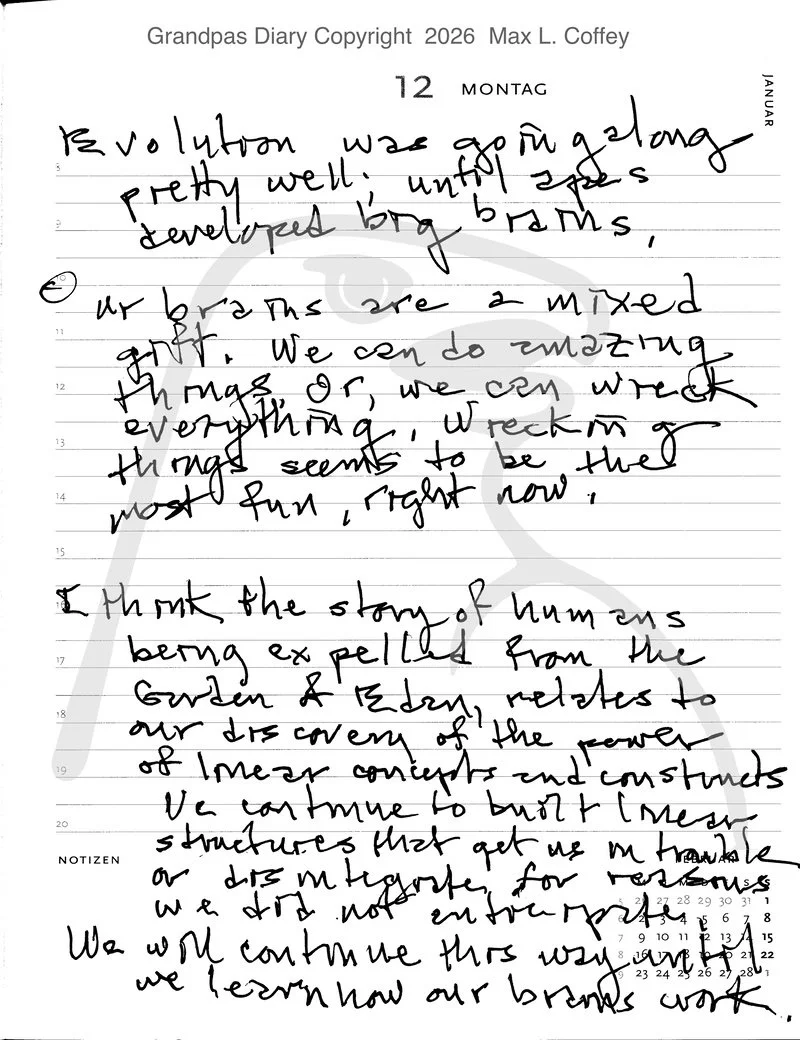 Grandpas Diary Copyright 2026 Max L. Coffey
12 MONTAG
JANUAR
Evolution was going along
pretty well; until apes
developed big brains.
Our brains are a mixed
gift. We can do amazing
things. Or, we can wreck
everything. Wrecking
things seems to be the
most fun, right now.
I think the story of humans
being expelled from the
Garden of Eden, relates to
our discovery of the power
of linear concepts and constructs
We continue to built linear
structures that get us in trouble
or disintegrate, for reasons
we did not
We will continue this way until
we learn how our brains work.
8
9
10
11
12
13
14
15
16
17
18
19
20
NOTIZEN
FEBRUAR
26 27 28 29 30 31 1
2 3 4 5 6 7 8
9 10 11 12 13 14 15
16 17 18 19 20 21 22
23 24 25 26 27 28 1